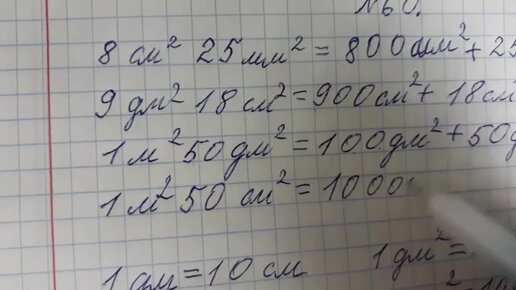 №60.
8 см² 25 мм² = 800 мм² + 25
9 дм² 18 см² = 900 см² + 18 см
1 м² 50 дм² = 100 дм² + 50 д
1 м² 50 см² = 1000
1 дм = 10 см 1 дм² =